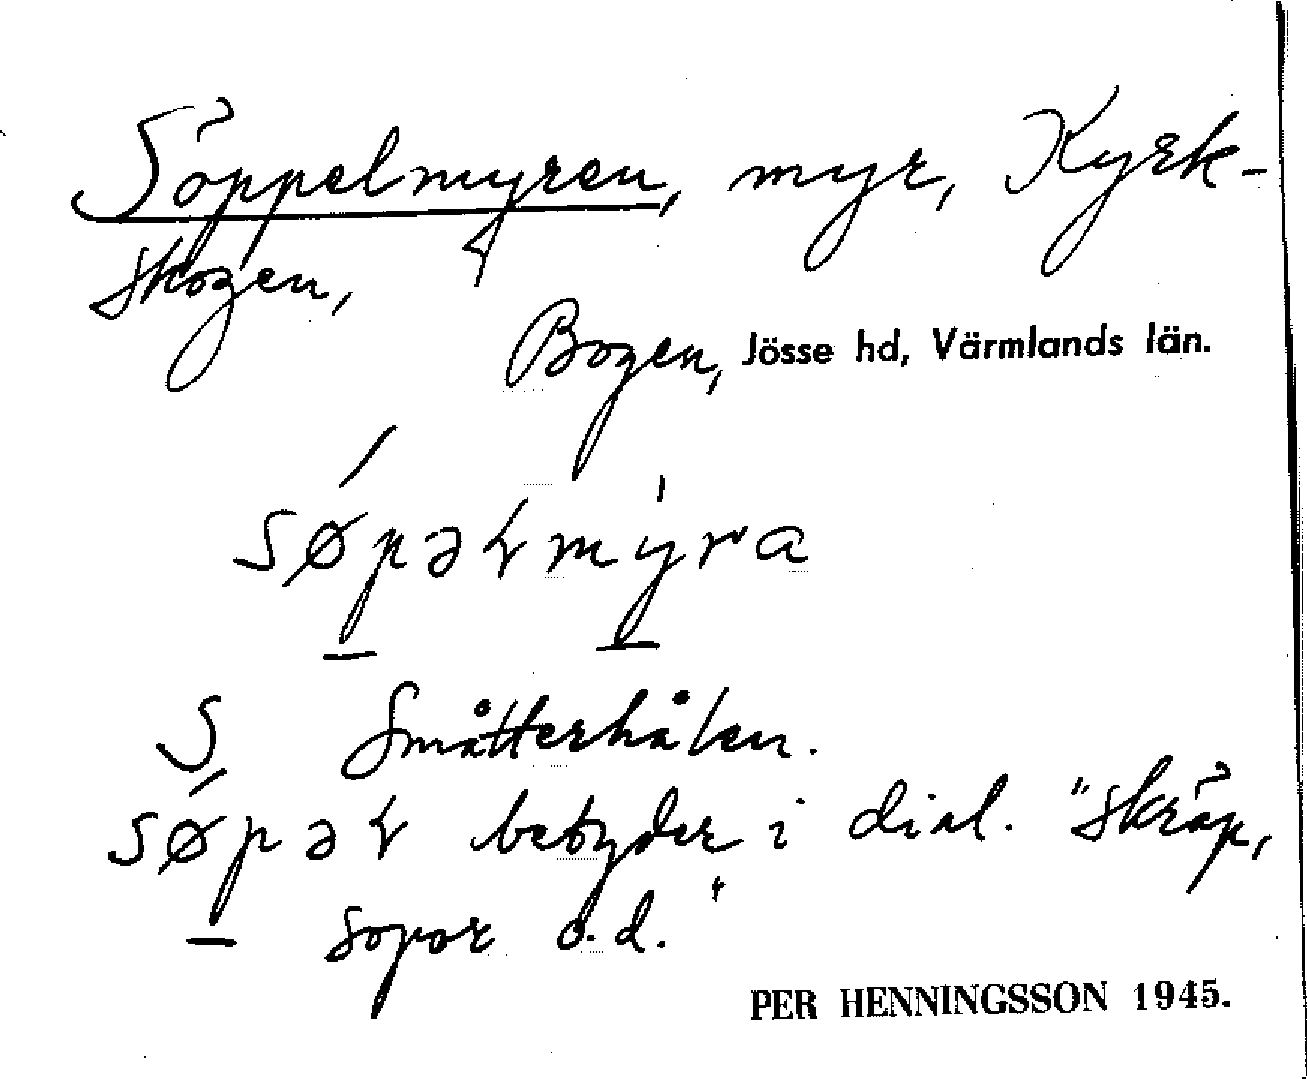 Söppelmyren, myr, Kyrk-
skogen,
Bogen, Jösse hd, Värmlands län.
søpəɽmyra
S Småtterhålen.
søpəɽ betyder i dial. "skräp,
sopor o.d."
PER HENNINGSSON 1945.